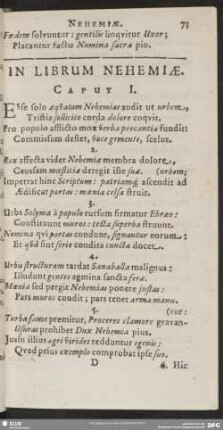 NEHEMIÆ. 73
Fœdem solvuntur: gentilis linqvitur Uxor;
Placantur factu Nomina sacra pio.
IN LIBRUM NEHEMIÆ.
CAPUT I.
Esse solo æqvatam Nehemias audit ut urbem,
Tristia sollicito corda dolore coqvit.
Pro populo afflicto mox verba precantia fundit:
Commissum deflet, voce gemente, scelus.
2.
Rex affecta videt Nehemiæ membra dolore,
Causam mœstitiæ detegit iste suæ. (urbem;
Impetrat hinc Scriptum: patriamq; ascendit ad
Ædificat portas: mœnia celsa struit.
3.
Urbs Solyma à populo rursum firmatur Ebræo:
Constituunt muros: tecta superba struunt.
Nomina qvi portas condunt, signantur eorum:
Et qvâ sint serie condita cuncta docet.
4.
Urbis structuram tardat Sanaballa malignus:
Illudunt gentes agmina sancta feræ.
Mœnia sed pergit Nehemias ponere justus:
Pars muros condit; pars tenet arma manu.
5. (tur:
Turba fame premitur, Proceres clamore gravan-
Usuras prohibet Dux Nehemia pius.
Jussu illius agri virides redduntur egenis;
Qvod prius exemplo comprobat ipse suo.
D 6. Hic